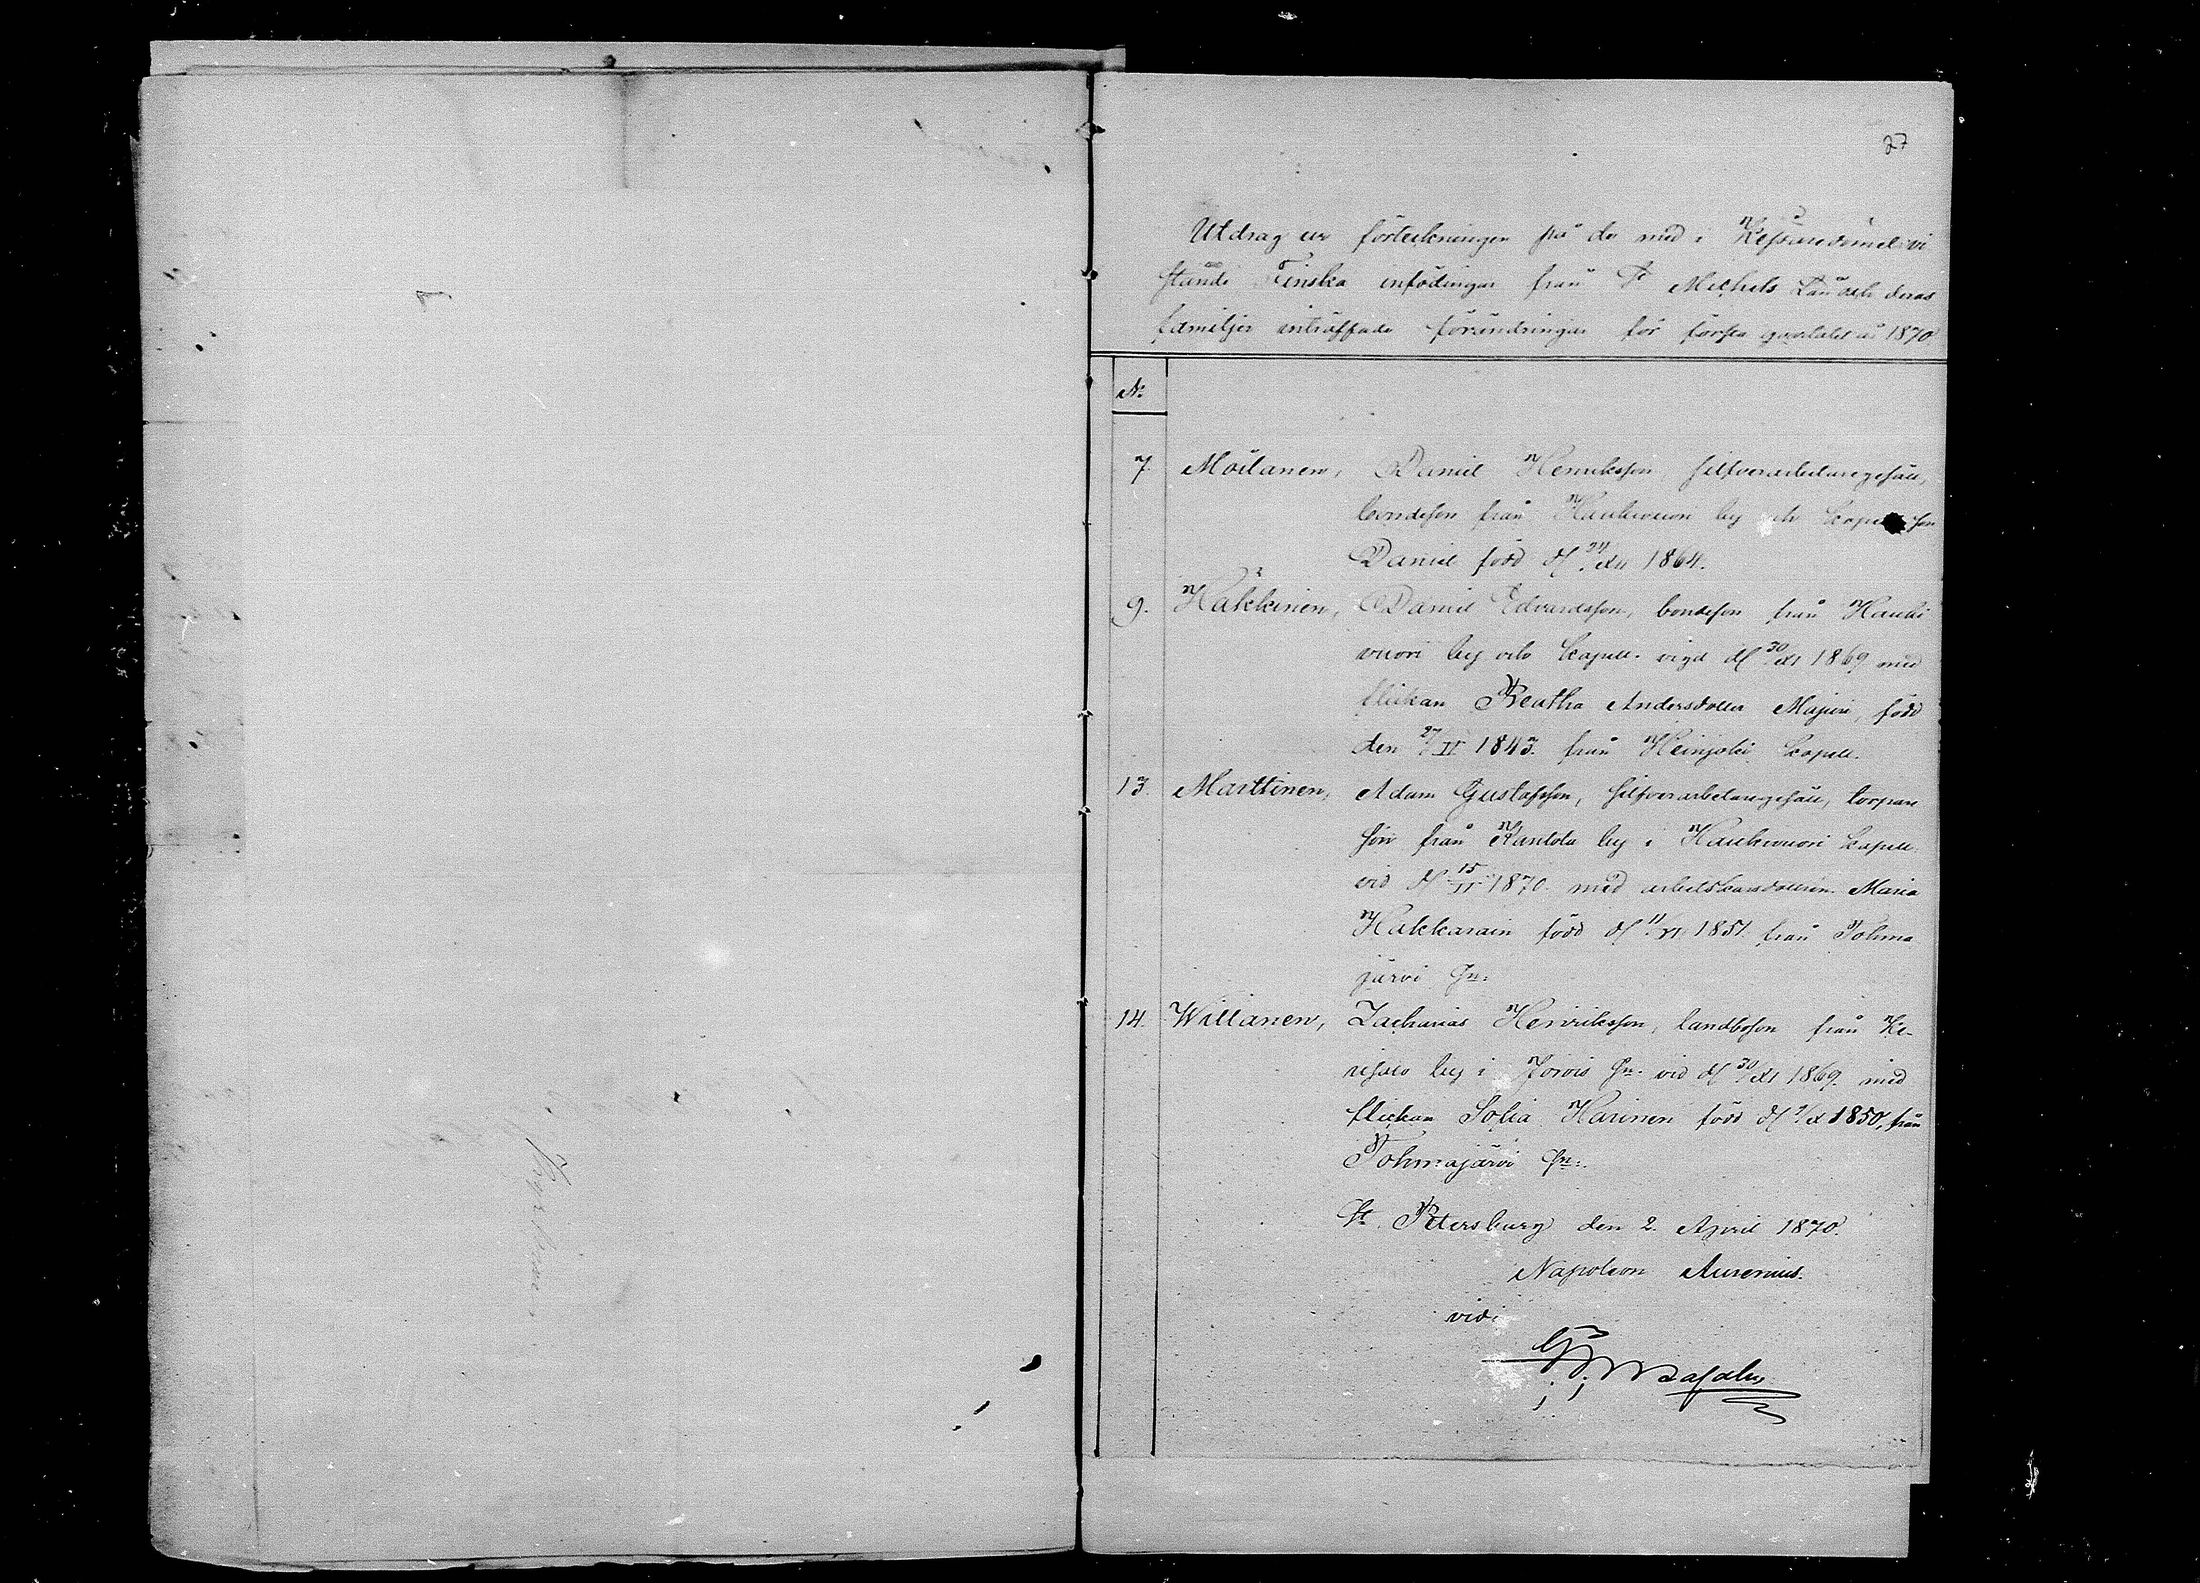 27
Utdrag ur förteckningen på de med i Kejsaredömet vi
stande Finska infödingar från St Michels Län och deras
familjer inträffade förändringar för första qvartalet år 1870
No
7. Moilanen, Daniel Henriksson, silfverarbetaregesäll,
bondeson från Haukivuori by och kapell son
Daniel född d 24/XII 1864.
9. Häkkinen, Daniel Edvardsson, bondeson från Hauki
vuori by och kapell. vigd d 30/XI 1869 med
flickan Beatha Andersdotter Majuri, född
den 27/II 1843. från Heinjoki kapell.
13. Marttinen, Adam Gustafsson, silfverarbetaregesäll, torpare
son från Kantola by i Haukivuori kapell.
vid d 15/II 1870. med arbetskarsdottern Maria
Hakkarain född d 11/VI 1851 från Tohma
järvi Sn:
14. Willanen, Zacharias Henriksson, landboson från Ke-
risalo by i Jorois Sn: vid d 30/XI 1869. med
flickan Sofia Karinen född d 9/X 1850, från
Tohmajärvi Sn:.
St. Petersburg den 2. April 1870.
Napoleon Aurenius.
vidi